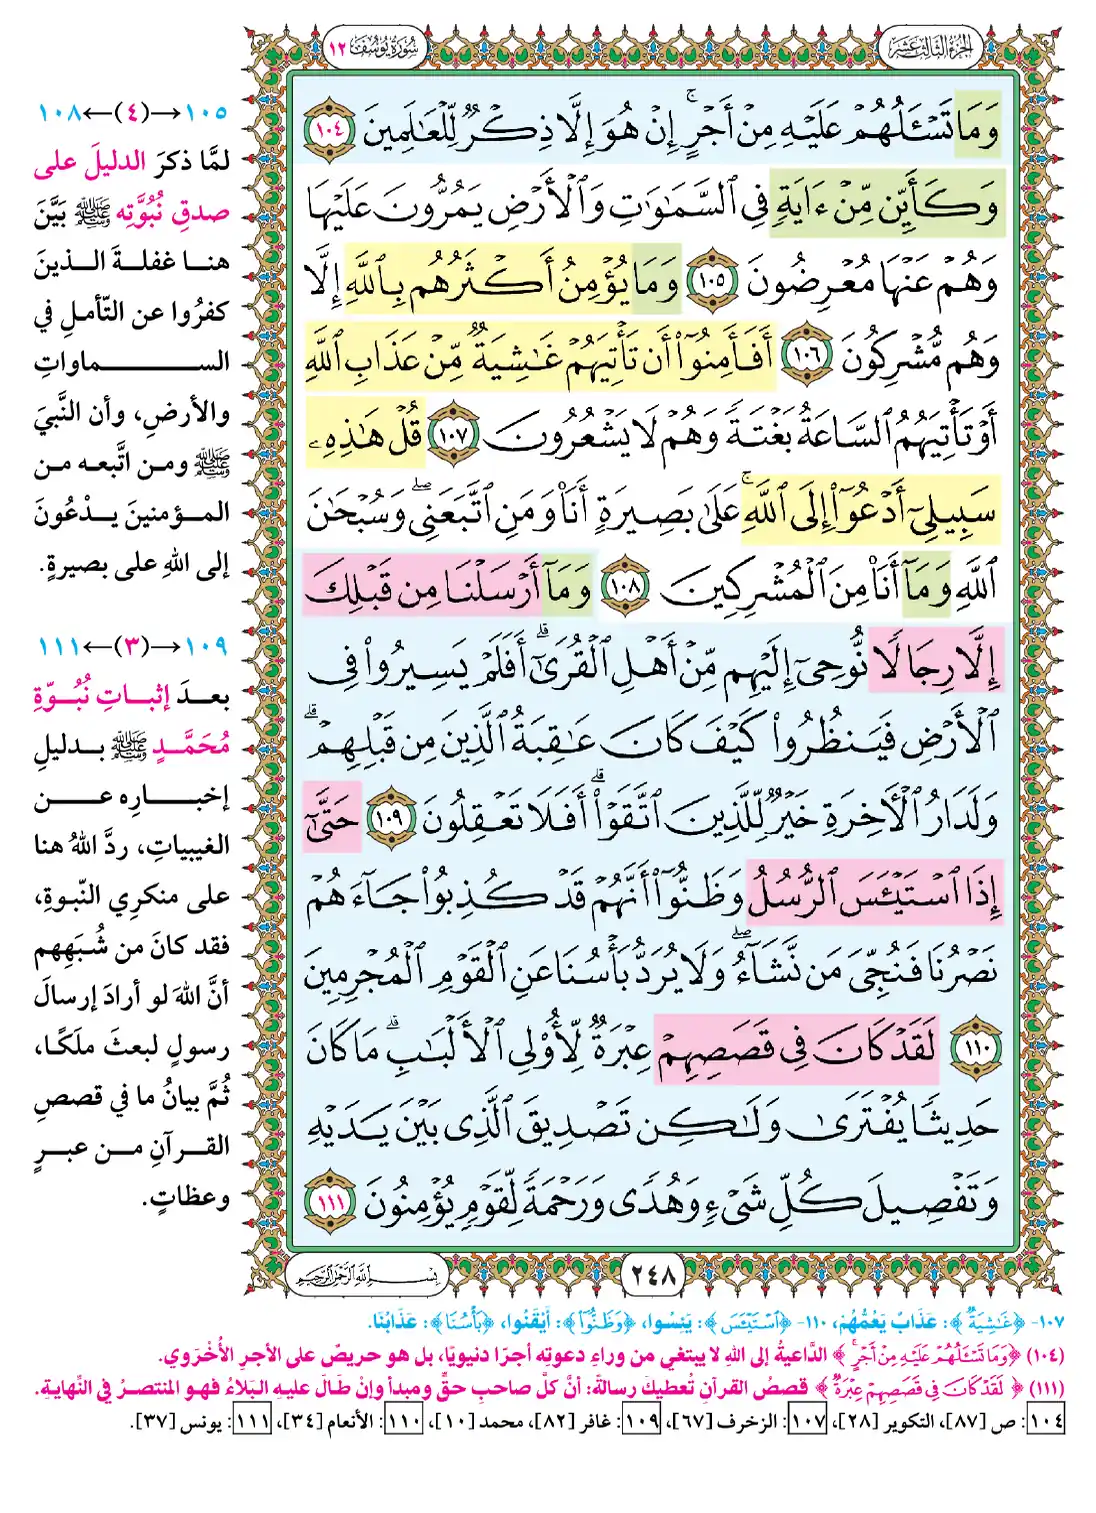 الجزء الثالث عشر
سورة يوسف ١٢
وَمَا تَسْـَٔلُهُمْ عَلَيْهِ مِنْ أَجْرٍ ۚ إِنْ هُوَ إِلَّا ذِكْرٌ لِّلْعَـٰلَمِينَ ١٠٤
وَكَأَيِّن مِّنْ ءَايَةٍ فِى ٱلسَّمَـٰوَٰتِ وَٱلْأَرْضِ يَمُرُّونَ عَلَيْهَا
وَهُمْ عَنْهَا مُعْرِضُونَ ١٠٥ وَمَا يُؤْمِنُ أَكْثَرُهُم بِٱللَّهِ إِلَّا
وَهُم مُّشْرِكُونَ ١٠٦ أَفَأَمِنُوٓا۟ أَن تَأْتِيَهُمْ غَـٰشِيَةٌ مِّنْ عَذَابِ ٱللَّهِ
أَوْ تَأْتِيَهُمُ ٱلسَّاعَةُ بَغْتَةً وَهُمْ لَا يَشْعُرُونَ ١٠٧ قُلْ هَـٰذِهِۦ
سَبِيلِىٓ أَدْعُوٓا۟ إِلَى ٱللَّهِ ۚ عَلَىٰ بَصِيرَةٍ أَنَا۠ وَمَنِ ٱتَّبَعَنِى ۖ وَسُبْحَـٰنَ
ٱللَّهِ وَمَآ أَنَا۠ مِنَ ٱلْمُشْرِكِينَ ١٠٨ وَمَآ أَرْسَلْنَا مِن قَبْلِكَ
إِلَّا رِجَالًا نُّوحِىٓ إِلَيْهِم مِّنْ أَهْلِ ٱلْقُرَىٰٓ ۗ أَفَلَمْ يَسِيرُوا۟ فِى
ٱلْأَرْضِ فَيَنظُرُوا۟ كَيْفَ كَانَ عَـٰقِبَةُ ٱلَّذِينَ مِن قَبْلِهِمْ ۗ
وَلَدَارُ ٱلْـَٔاخِرَةِ خَيْرٌ لِّلَّذِينَ ٱتَّقَوْا۟ ۗ أَفَلَا تَعْقِلُونَ ١٠٩ حَتَّىٰٓ
إِذَا ٱسْتَيْـَٔسَ ٱلرُّسُلُ وَظَنُّوٓا۟ أَنَّهُمْ قَدْ كُذِبُوا۟ جَآءَهُمْ
نَصْرُنَا فَنُجِّىَ مَن نَّشَآءُ ۖ وَلَا يُرَدُّ بَأْسُنَا عَنِ ٱلْقَوْمِ ٱلْمُجْرِمِينَ
١١٠ لَقَدْ كَانَ فِى قَصَصِهِمْ عِبْرَةٌ لِّأُو۟لِى ٱلْأَلْبَـٰبِ ۗ مَا كَانَ
حَدِيثًا يُفْتَرَىٰ وَلَـٰكِن تَصْدِيقَ ٱلَّذِى بَيْنَ يَدَيْهِ
وَتَفْصِيلَ كُلِّ شَىْءٍ وَهُدًى وَرَحْمَةً لِّقَوْمٍ يُؤْمِنُونَ ١١١
١٠٥→(٤)←١٠٨
لمَّا ذكرَ الدليلَ على
صدقِ نُبُوَّتِه ﷺ بَيَّنَ
هنـا غفلـةَ الـذينَ
كفرُوا عن التّأملِ في
السـماواتِ
والأرضِ، وأن النَّبيَ
ﷺ ومـن اتَّبعـه مـن
المـؤمنينَ يـدْعُونَ
إلى اللهِ على بصيرةٍ.
١٠٩→(٣)←١١١
بعـدَ إثبـاتِ نُبُـوّةِ
مُحَمَّـدٍ ﷺ بـدليلِ
إخبـارِه عـن
الغيبياتِ، ردَّ اللهُ هنا
على منكرِي النّبوةِ،
فقد كانَ من شُبَهِهم
أنَّ اللهَ لو أرادَ إرسالَ
رسولٍ لبعثَ ملَكًا،
ثُمَّ بيانُ ما في قصصِ
القـرآنِ مـن عبـرٍ
وعظاتٍ.
٢٤٨
بسم الله الرحمن الرحيم
١٠٧- ﴿غَـٰشِيَةٌ﴾: عَذَابٌ يَعُمُّهُمْ، ١١٠- ﴿ٱسْتَيْـَٔسَ﴾: يَئِسُوا، ﴿وَظَنُّوٓا۟﴾: أَيْقَنُوا، ﴿بَأْسُنَا﴾: عَذَابُنَا.
(١٠٤) ﴿وَمَا تَسْـَٔلُهُمْ عَلَيْهِ مِنْ أَجْرٍ ۚ﴾ الدَّاعيةُ إلى اللهِ لا يبتغي من وراءِ دعوتِه أجرًا دنيويًا، بل هو حريصٌ على الأجرِ الأُخْروي.
(١١١) ﴿لَقَدْ كَانَ فِى قَصَصِهِمْ عِبْرَةٌ﴾ قصصُ القرآنِ تُعطيكَ رسالةً: أنَّ كلَّ صاحبِ حقٍّ ومبدأٍ وإنْ طالَ عليهِ البَلاءُ فهو المنتصرُ في النِّهايةِ.
١٠٤: ص [٨٧]، التكوير [٢٨]، ١٠٧: الزخرف [٦٧]، ١٠٩: غافر [٨٢]، محمد [١٠]، ١١٠: الأنعام [٣٤]، ١١١: يونس [٣٧].